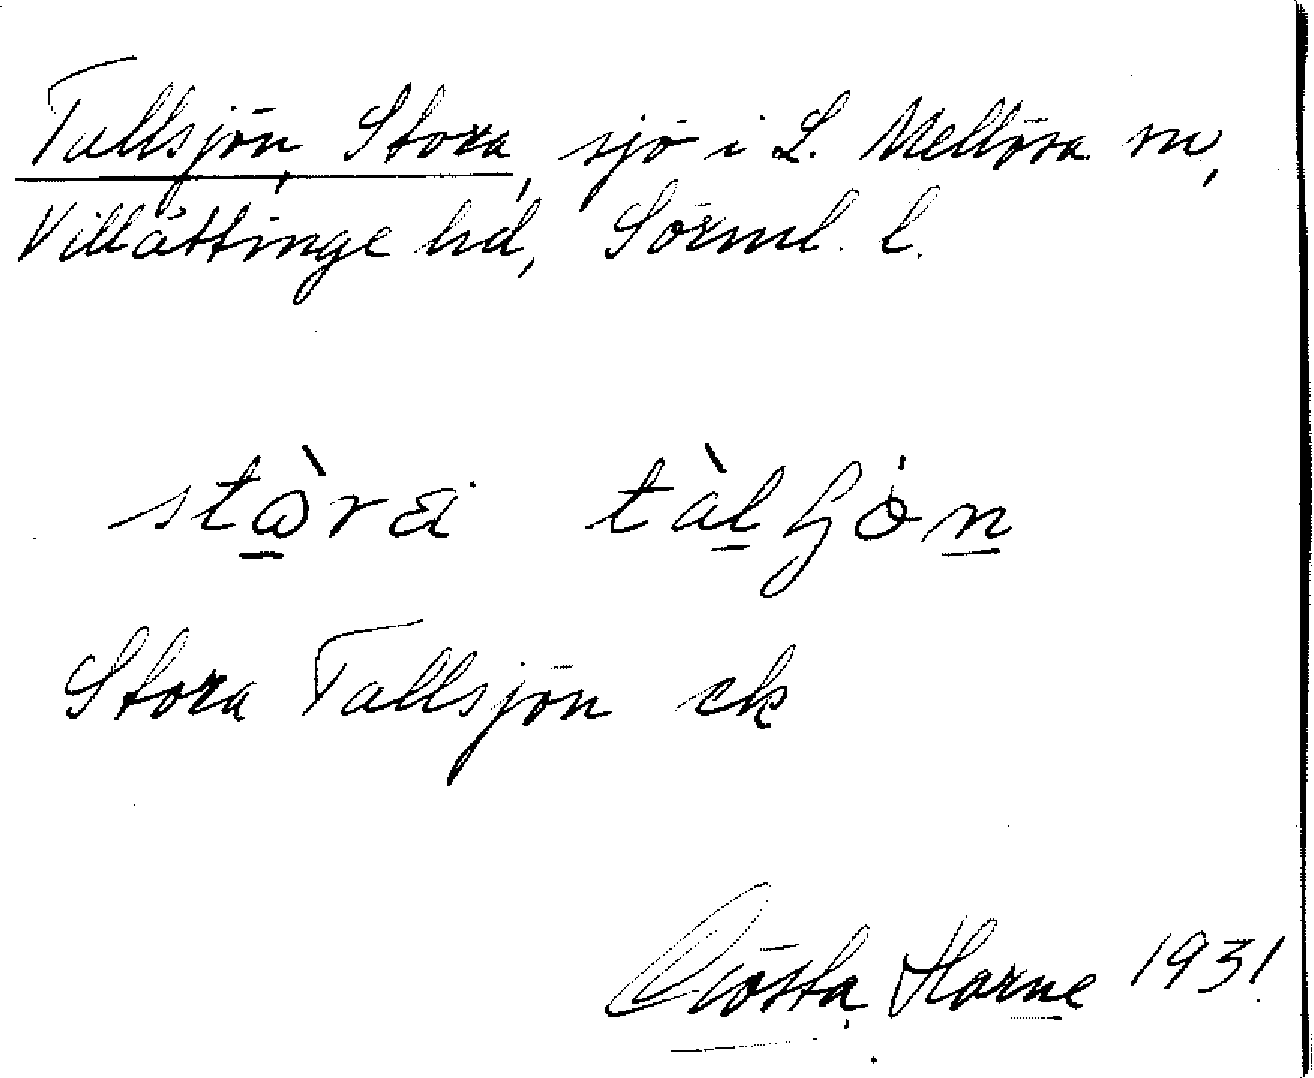 Tallsjön, Stora, sjö i L. Mellösa sn,
Villåttinge hd, Sörml. l.
Stora Tallsjön ek
Gösta Horne 1931